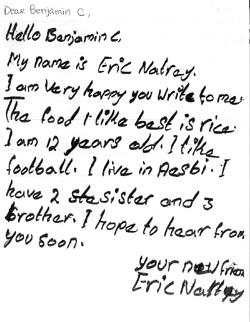 Dear Benjamin C,
Hello Benjamin C.
My name is Eric Natrey.
I am very happy you write to me.
The food I like best is rice.
I am 12 years old. I like
football. I live in Aesbi. I
have 2 stesister and 3
brother. I hope to hear from
you soon.
your new frien
Eric Natrey